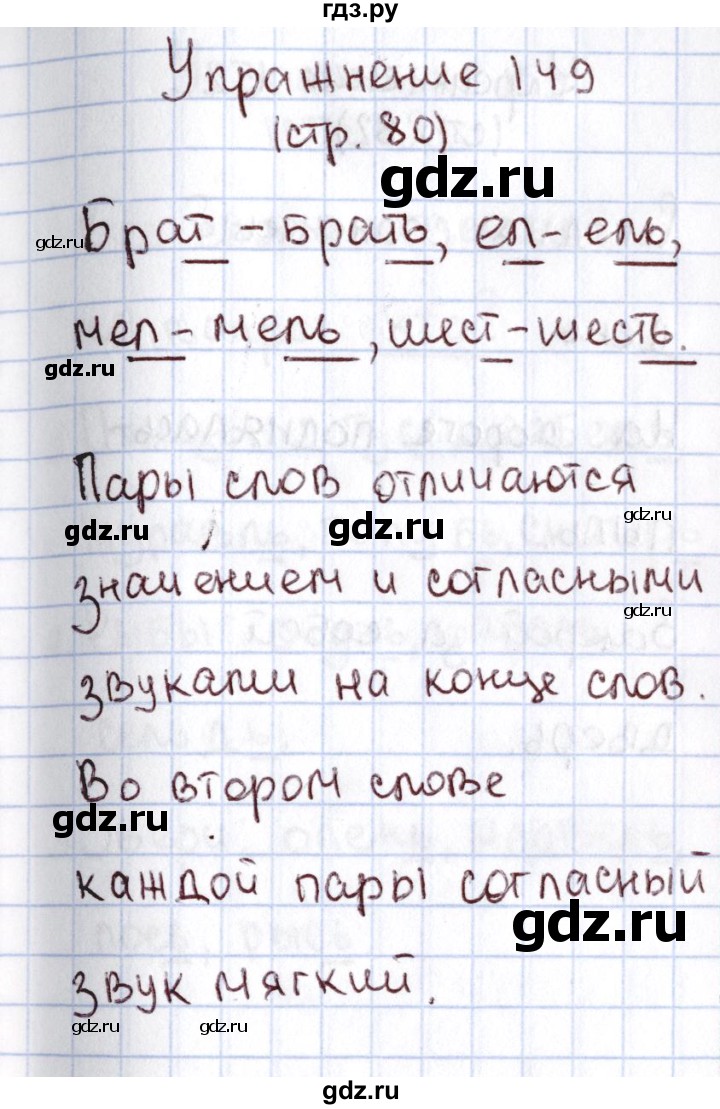 гдз.ру
Упражнение 149
(стр. 80)
gdz.ru
Брат - брать, ел - ель,
gdz.ru
мел - мель, шест - шесть.
gdz.ru
Пары слов отличаются
gdz.ru
gdz.ru gdz.ru
значением и согласными
gdz.ru
звуками на конце слов.
Во втором слове
gdz.ru
каждой пары согласный
gdz.ru
звук мягкий.
gdz.ru gdz.ru
gdz.ru